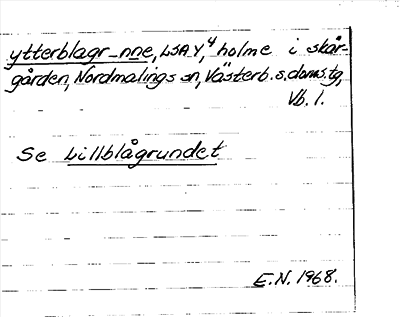 ytterblagr_nne, LSA Y, 4 holme i skär-
gården, Nordmalings sn, Västerb. s. doms. tg,
Vb. l.
Se Lillblågrundet
E.N. 1968.